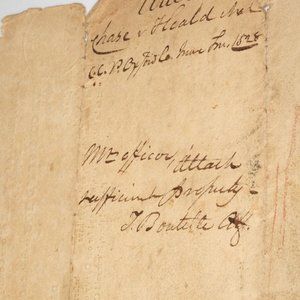 Chase v Heald
C.C.P. Oxford Co. June Tm. 1828
Mr officer Attach
sufficient property
T. Boutelle Atty.